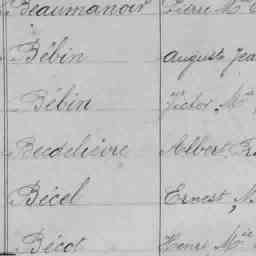 Beaumanoir Pierre Mie
Bébin Auguste Jea
Bébin Victor, Mie
Becdelièvre Albert
Bécel Ernest,
Bécot Henri Mie